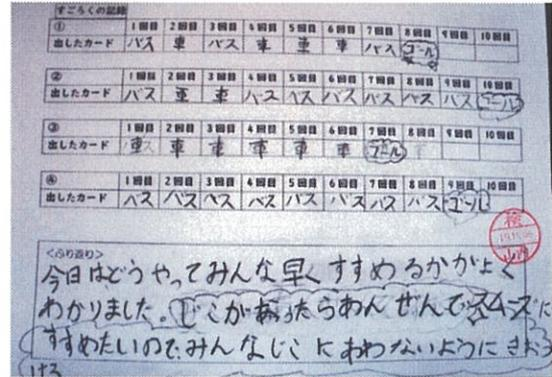 すごろくの記録
① 1回目 2回目 3回目 4回目 5回目 6回目 7回目 8回目 9回目 10回目
出したカード バス 車 バス 車 車 車 バス ゴール
② 1回目 2回目 3回目 4回目 5回目 6回目 7回目 8回目 9回目 10回目
出したカード バス 車 車 バス バス バス バス バス バス ゴール
③ 1回目 2回目 3回目 4回目 5回目 6回目 7回目 8回目 9回目 10回目
出したカード 車 車 車 車 車 車 ゴール
④ 1回目 2回目 3回目 4回目 5回目 6回目 7回目 8回目 9回目 10回目
出したカード バス バス バス バス バス バス バス バス ゴール
<ふり返り>
今日はどうやってみんな早くすすめるかがよく
わかりました。じこがあったらあんぜんでスムーズに
すすめたいので、みんなじこにあわないようにきおつ
ける